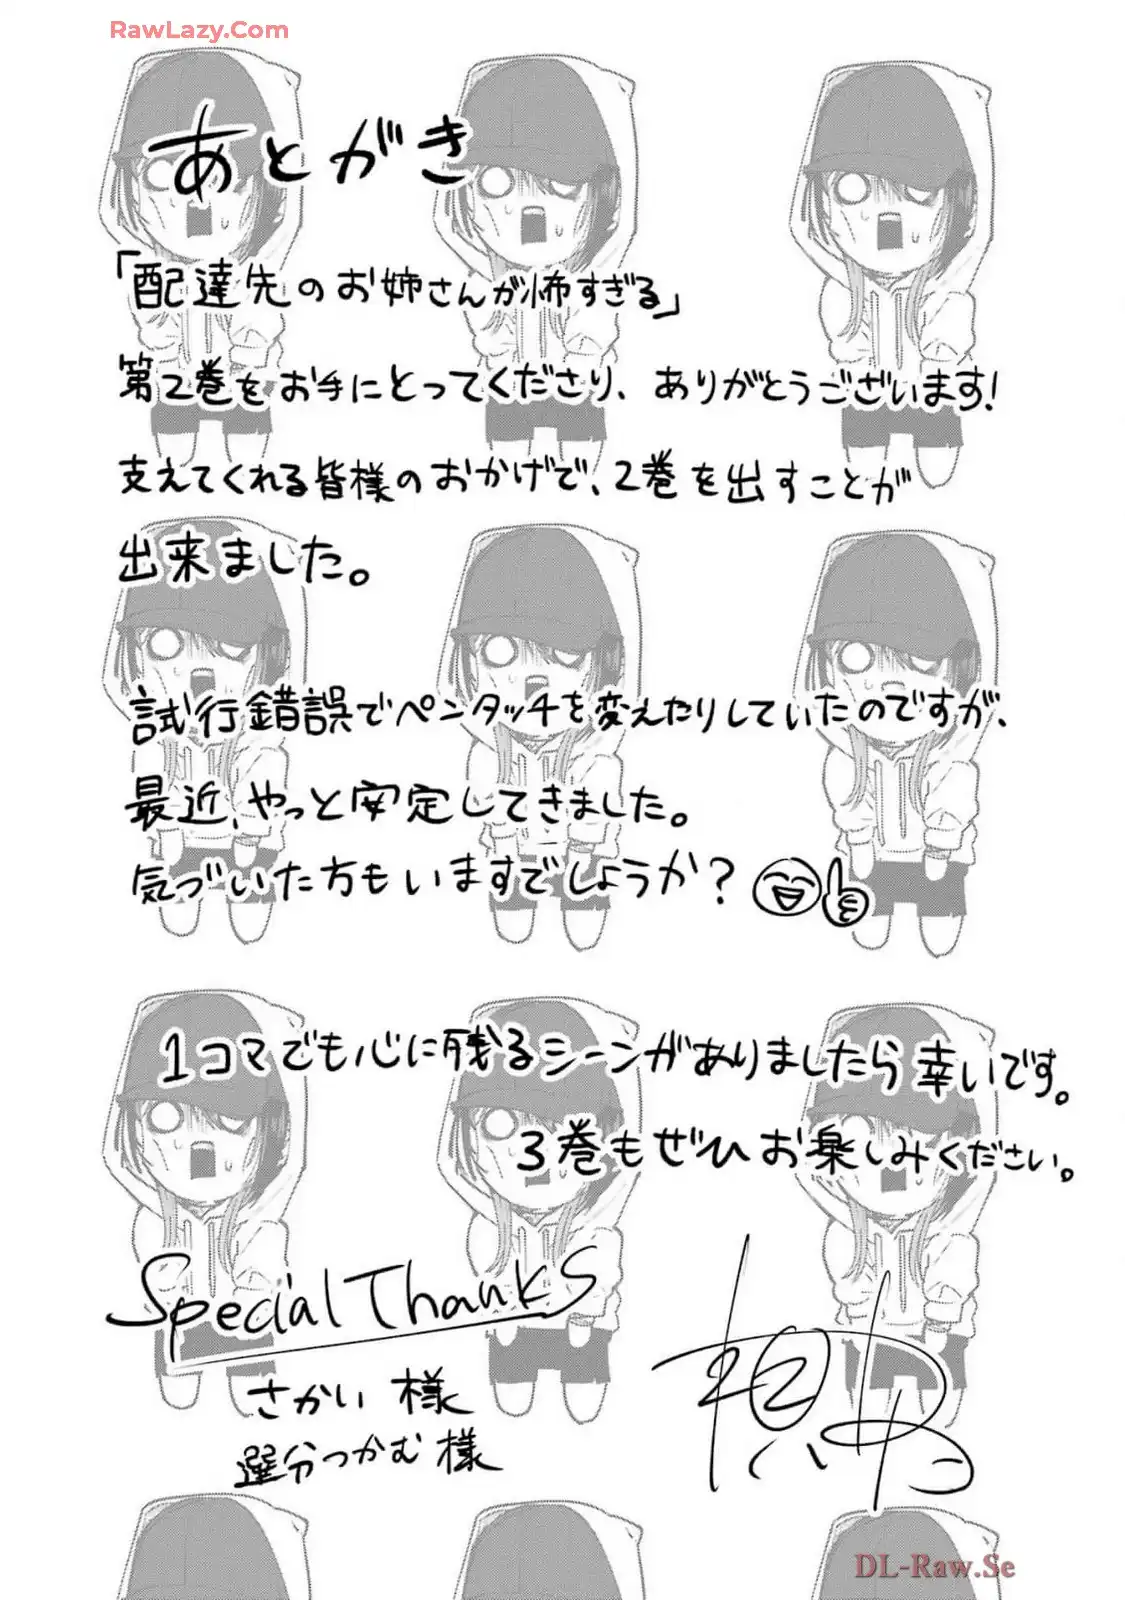 RawLazy.Com
あとがき
「配達先のお姉さんが怖すぎる」
第2巻をお手にとってくださり、ありがとうございます!
支えてくれる皆様のおかげで、2巻を出すことが
出来ました。
試行錯誤でペンタッチを変えたりしていたのですが、
最近、やっと安定してきました。
気づいた方もいますでしょうか?
1コマでも心に残るシーンがありましたら幸いです。
3巻もぜひお楽しみください。
Special Thanks
さかい様
分つかむ様
DL-Raw.Se